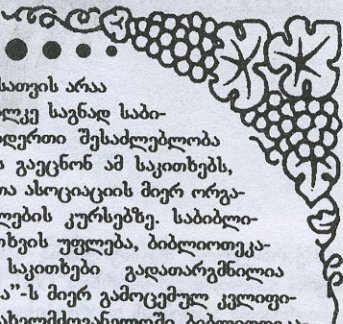 სათვის არაა
ლკე საგნად საბი-
დერთი შესაძლებლობა
ს გაეცნონ ამ საკითხებს,
თა ასოციაციის მიერ ორგა-
ლების კურსებზე. საბიბლი-
თხვის უფლება, ბიბლიოთეკა-
საკითხები გადათარგმნილია
ა"-ს მიერ გამოცემულ კვლიფი-